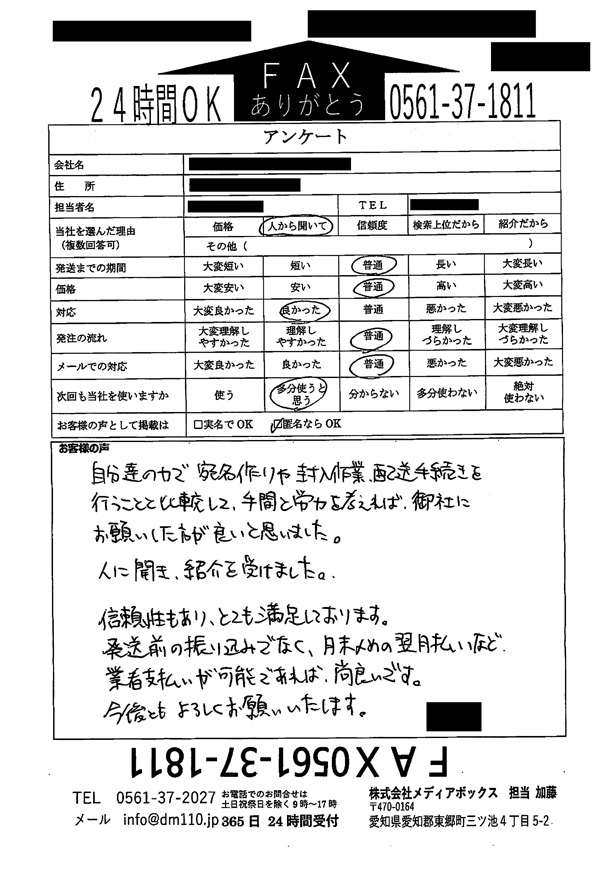 FAX
24時間OK ありがとう 0561-37-1811
アンケート
会社名
住 所
担当者名 TEL
当社を選んだ理由 価格 人から聞いて 信頼度 検索上位だから 紹介だから
(複数回答可) その他( )
発送までの期間 大変短い 短い 普通 長い 大変長い
価格 大変安い 安い 普通 高い 大変高い
対応 大変良かった 良かった 普通 悪かった 大変悪かった
発注の流れ 大変理解しやすかった 理解しやすかった 普通 理解しづらかった 大変理解しづらかった
メールでの対応 大変良かった 良かった 普通 悪かった 大変悪かった
次回も当社を使いますか 使う 多分使うと思う 分からない 多分使わない 絶対使わない
お客様の声として掲載は □実名でOK ☑匿名ならOK
お客様の声
自分達の力で宛名作りや封入作業、配送手続きを
行うことと比較して、手間と労力を考えれば、御社に
お願いした方が良いと思いました。
人に聞き、紹介を受けました。
信頼性もあり、とても満足しております。
発送前の振り込みでなく、月末〆めの翌月払いなど
業者支払いが可能であれば、尚良いです。
今後ともよろしくお願いいたします。
FAX0561-37-1811
TEL 0561-37-2027 お電話でのお問合せは
土日祝祭日を除く9時～17時
メール info@dm110.jp 365日 24時間受付
株式会社メディアボックス 担当 加藤
〒470-0164
愛知県愛知郡東郷町三ツ池4丁目5-2